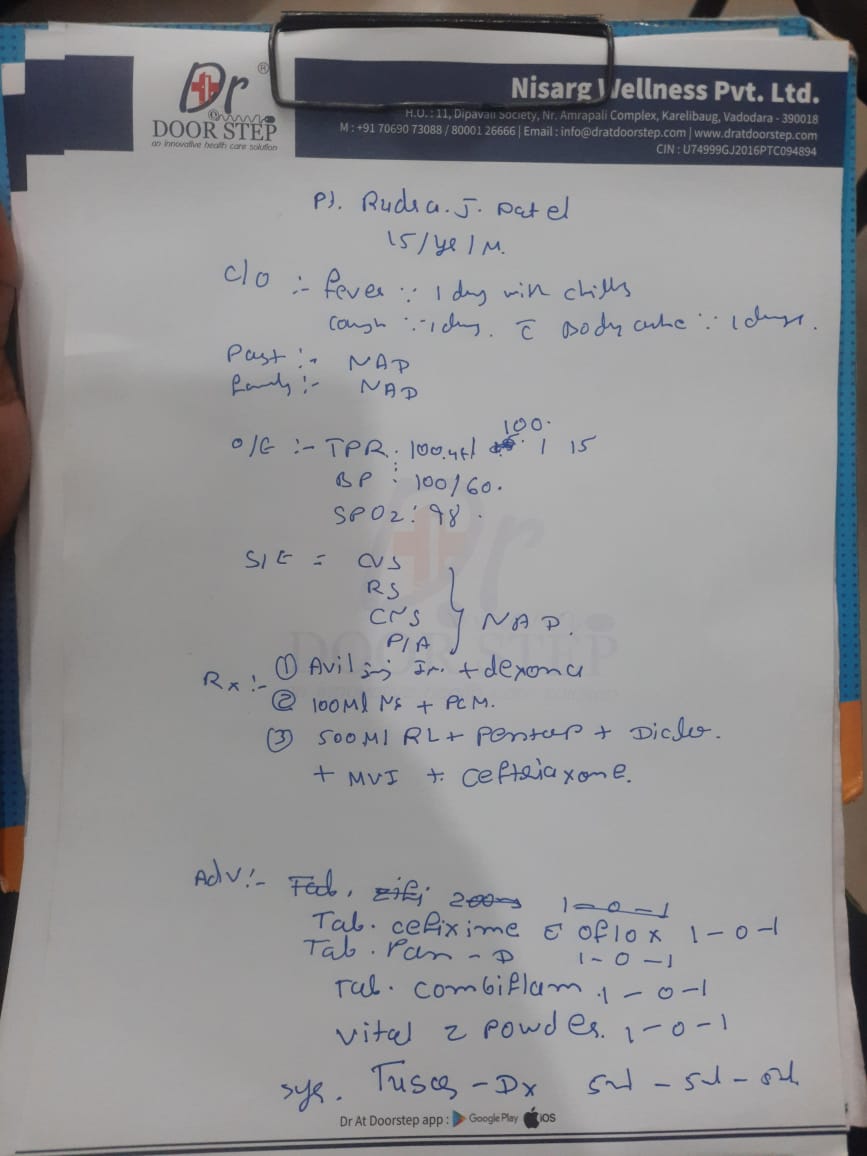 Dr ®
DOOR STEP
an innovative health care solution
Nisarg Wellness Pvt. Ltd.
H.O. : 11, Dipavali Society, Nr. Amrapali Complex, Karelibaug, Vadodara - 390018
M : +91 70690 73088 / 80001 26666 | Email : info@dratdoorstep.com | www.dratdoorstep.com
CIN : U74999GJ2016PTC094894
Pt. Rudra. J. Patel
15/ye/M.
C/O :- fever ∵ 1 day with chills
cough ∵ 1 day. c̄ Body ache ∵ 1 days.
Past :- NAD
Family :- NAD
O/E :- TPR : 100.4f/ 100. / 15
BP : 100/60.
SPO2 : 98.
S/E = CVS
RS
CNS } NAD.
P/A
Rx :- ① Avil inj Im. + dexona
② 100Ml NS + PCM.
③ 500Ml RL + Pantop + Diclo.
+ MVI + ceftriaxone.
Adv :- Tab. zifi 200 1-0-1
Tab. cefixime c̄ oflox 1-0-1
Tab. Pan-D 1-0-1
Tab. combiflam 1-0-1
vital z powder. 1-0-1
syr. Tusq-Dx 5ml - 5ml - 5ml
Dr At Doorstep app : Google Play iOS